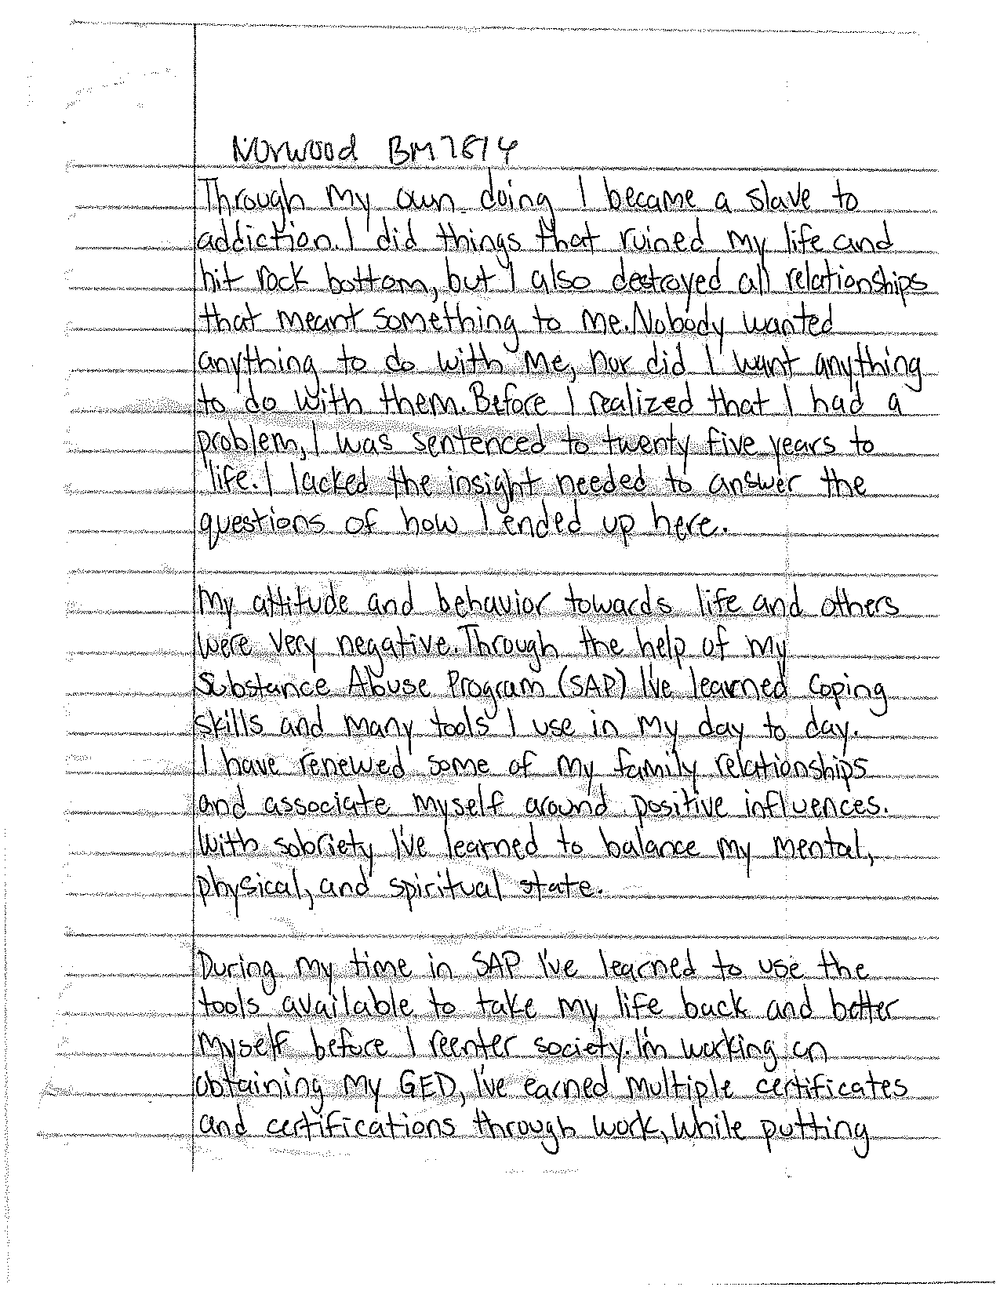 Norwood BM7814
Through my own doing I became a slave to
addiction. I did things that ruined my life and
hit rock bottom, but I also destroyed all relationships
that meant something to me. Nobody wanted
anything to do with me, nor did I want anything
to do with them. Before I realized that I had a
problem, I was sentenced to twenty five years to
life. I lacked the insight needed to answer the
questions of how I ended up here.
My attitude and behavior towards life and others
were very negative. Through the help of my
Substance Abuse Program (SAP) I've learned coping
skills and many tools I use in my day to day.
I have renewed some of my family relationships
and associate myself around positive influences.
With sobriety I've learned to balance my mental,
physical, and spiritual state.
During my time in SAP I've learned to use the
tools available to take my life back and better
myself before I reenter society. I'm working on
obtaining my GED, I've earned multiple certificates
and certifications through work, while putting